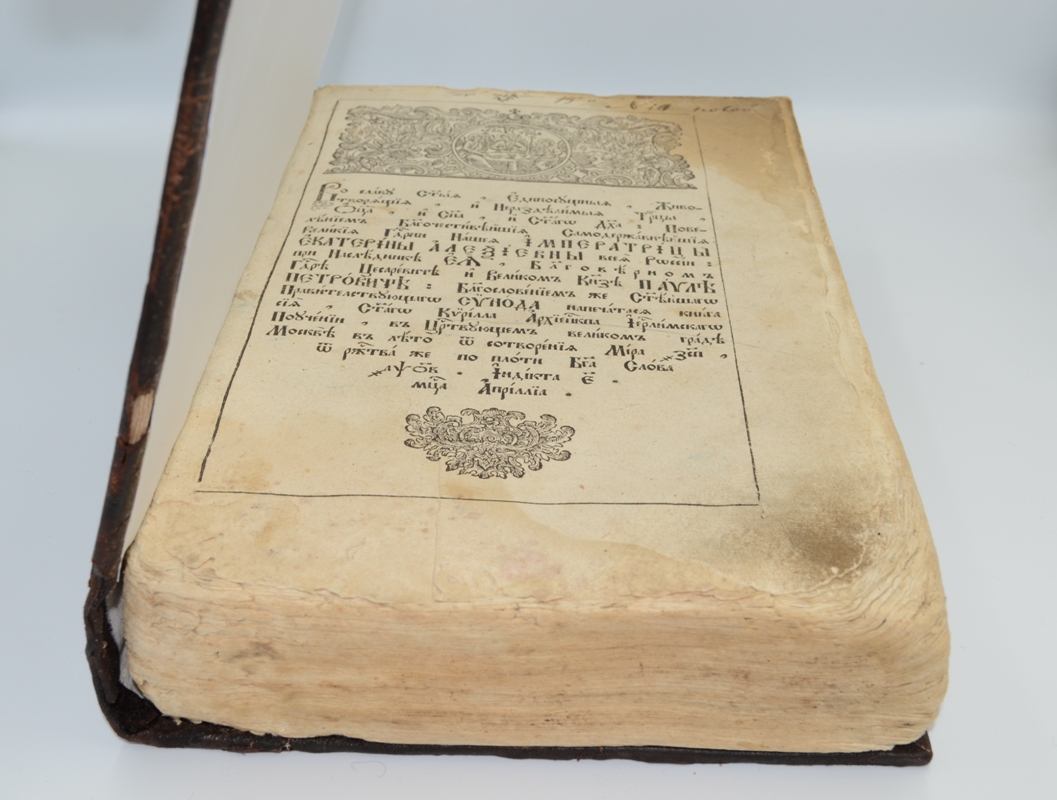 Во славу Ст҃ыѧ , Єдиносꙋщныѧ , Живо-
творѧщїѧ , и Нераздѣлимыѧ Трⷪ҇цы ,
Ѻц҃а , и Сн҃а , и Ст҃агѡ Дх҃а : Пове-
лѣнїемъ Благочестивѣйшїѧ Самодержавнѣйшїѧ
Великїѧ Гдⷭ҇рни Нашеѧ ІМПЕРАТРІЦЫ
ЄКАТЕРІНЫ АЛЕѮІЕВНЫ всеѧ Рѡссїи :
при Наслѣдникѣ ЄѦ , Благовѣрномъ
Гдⷭ҇рѣ Цесаревичѣ и Великомъ Кнѧ҃зѣ ПАѴЛѢ
ПЕТРОВИЧѢ : Благословенїемъ же Ст҃ѣйшагѡ
Правителствꙋющагѡ СѴНОДА напечатасѧ книга
сїѧ , Ст҃агѡ Кѷрілла Архїепⷭ҇кпа Іерⷭ҇лимскагѡ
Поꙋченїи , въ Црⷭ҇твꙋющемъ великомъ градѣ
Москвѣ въ лѣто ѿ сотворенїѧ Міра ҂зс҃п ,
ѿ ржⷭ҇тва же по плоти Бг҃а Слова
҂аѱо҃в . Індікта є҃ .
мцⷭ҇а Апрїллїа .